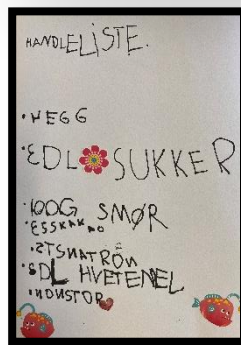 HANDLELISTE.
· 4EGG
· 3DL SUKKER
· 100G SMØR
· ESSKAKAO
· 2TSNATRÔN
· 8DL HVETEMEL
· NONSTOP